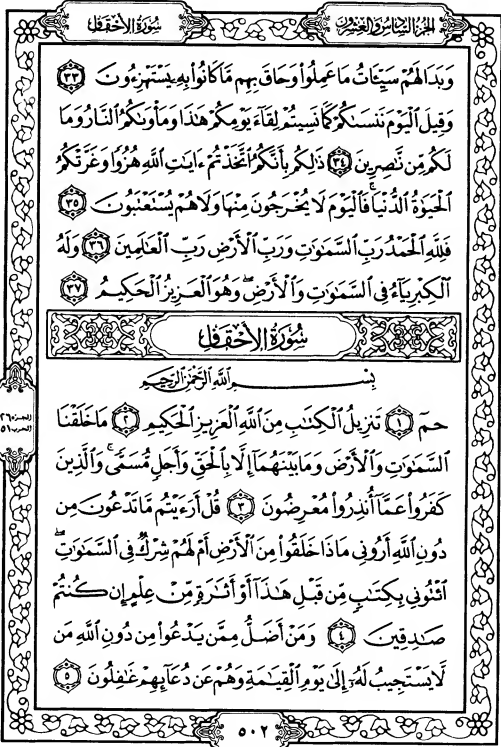 الجزء السادس والعشرون
سورة الأحقاف
وَبَدَا لَهُمْ سَيِّـَٔاتُ مَا عَمِلُوا۟ وَحَاقَ بِهِم مَّا كَانُوا۟ بِهِۦ يَسْتَهْزِءُونَ ٣٣
وَقِيلَ ٱلْيَوْمَ نَنسَىٰكُمْ كَمَا نَسِيتُمْ لِقَآءَ يَوْمِكُمْ هَٰذَا وَمَأْوَىٰكُمُ ٱلنَّارُ وَمَا
لَكُم مِّن نَّٰصِرِينَ ٣٤ ذَٰلِكُم بِأَنَّكُمُ ٱتَّخَذْتُمْ ءَايَٰتِ ٱللَّهِ هُزُوًا وَغَرَّتْكُمُ
ٱلْحَيَوٰةُ ٱلدُّنْيَا ۚ فَٱلْيَوْمَ لَا يُخْرَجُونَ مِنْهَا وَلَا هُمْ يُسْتَعْتَبُونَ ٣٥
فَلِلَّهِ ٱلْحَمْدُ رَبِّ ٱلسَّمَٰوَٰتِ وَرَبِّ ٱلْأَرْضِ رَبِّ ٱلْعَٰلَمِينَ ٣٦ وَلَهُ
ٱلْكِبْرِيَآءُ فِى ٱلسَّمَٰوَٰتِ وَٱلْأَرْضِ ۖ وَهُوَ ٱلْعَزِيزُ ٱلْحَكِيمُ ٣٧
سورة الأحقاف
بِسْمِ ٱللَّهِ ٱلرَّحْمَٰنِ ٱلرَّحِيمِ
حمٓ ١ تَنزِيلُ ٱلْكِتَٰبِ مِنَ ٱللَّهِ ٱلْعَزِيزِ ٱلْحَكِيمِ ٢ مَا خَلَقْنَا
ٱلسَّمَٰوَٰتِ وَٱلْأَرْضَ وَمَا بَيْنَهُمَآ إِلَّا بِٱلْحَقِّ وَأَجَلٍ مُّسَمًّى ۚ وَٱلَّذِينَ
كَفَرُوا۟ عَمَّآ أُنذِرُوا۟ مُعْرِضُونَ ٣ قُلْ أَرَءَيْتُم مَّا تَدْعُونَ مِن
دُونِ ٱللَّهِ أَرُونِى مَاذَا خَلَقُوا۟ مِنَ ٱلْأَرْضِ أَمْ لَهُمْ شِرْكٌ فِى ٱلسَّمَٰوَٰتِ ۖ
ٱئْتُونِى بِكِتَٰبٍ مِّن قَبْلِ هَٰذَآ أَوْ أَثَٰرَةٍ مِّنْ عِلْمٍ إِن كُنتُمْ
صَٰدِقِينَ ٤ وَمَنْ أَضَلُّ مِمَّن يَدْعُوا۟ مِن دُونِ ٱللَّهِ مَن
لَّا يَسْتَجِيبُ لَهُۥٓ إِلَىٰ يَوْمِ ٱلْقِيَٰمَةِ وَهُمْ عَن دُعَآئِهِمْ غَٰفِلُونَ ٥
الجزء ٢٦
الحزب ٥١
٥٠٢